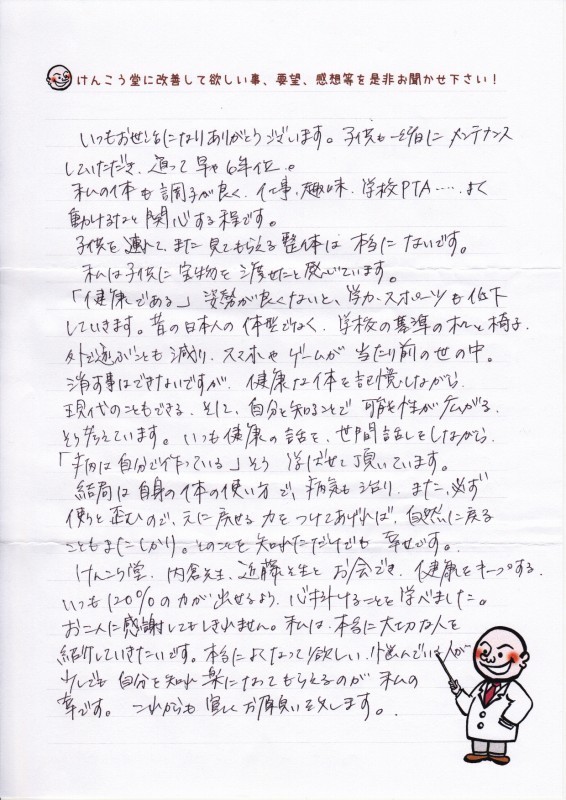 けんこう堂に改善して欲しい事、要望、感想等を是非お聞かせ下さい！
いつもお世話になりありがとうございます。子供も一緒に メンテナンス
していただき、通って早や6年位。
私の体も調子が良く、仕事、趣味、学校PTA……よく
動けるなと関心する程です。
子供を連れて、また見てもらえる整体は本当にないです。
私は子供に宝物を渡せたと感じています。
「健康である」姿勢が良くないと、学力、スポーツも低下
していきます。昔の日本人の体型でなく、学校の基準の机と椅子、
外で遊ぶことも減り、スマホやゲームが当たり前の世の中。
消す事はできないですが、健康な体を記憶しながら、
現代のこともできる。そして、自分を知ることで可能性が広がる。
そう考えています。いつも健康の話を、世間話しをしながら、
「病は自分で作っている」そう学ばせて頂いています。
結局は自身の体の使い方で、病気も治り、また、必ず
使うと歪むので、元に戻せる力をつけてあげれば、自然に戻る
こともまたしかり。そのことを知れただけでも幸せです。
けんこう堂、内倉先生、近藤先生とお会でき、健康をキープする、
いつも120%の力が出せるよう、心掛けることを学べました。
お二人に感謝してもしきれません。私は、本当に大切な人を
紹介していきたいです。本当によくなって欲しい、悩んでいる人が
少しでも自分を知れ楽になってもらえるのが私の
幸です。これからも宜しくお願い致します。